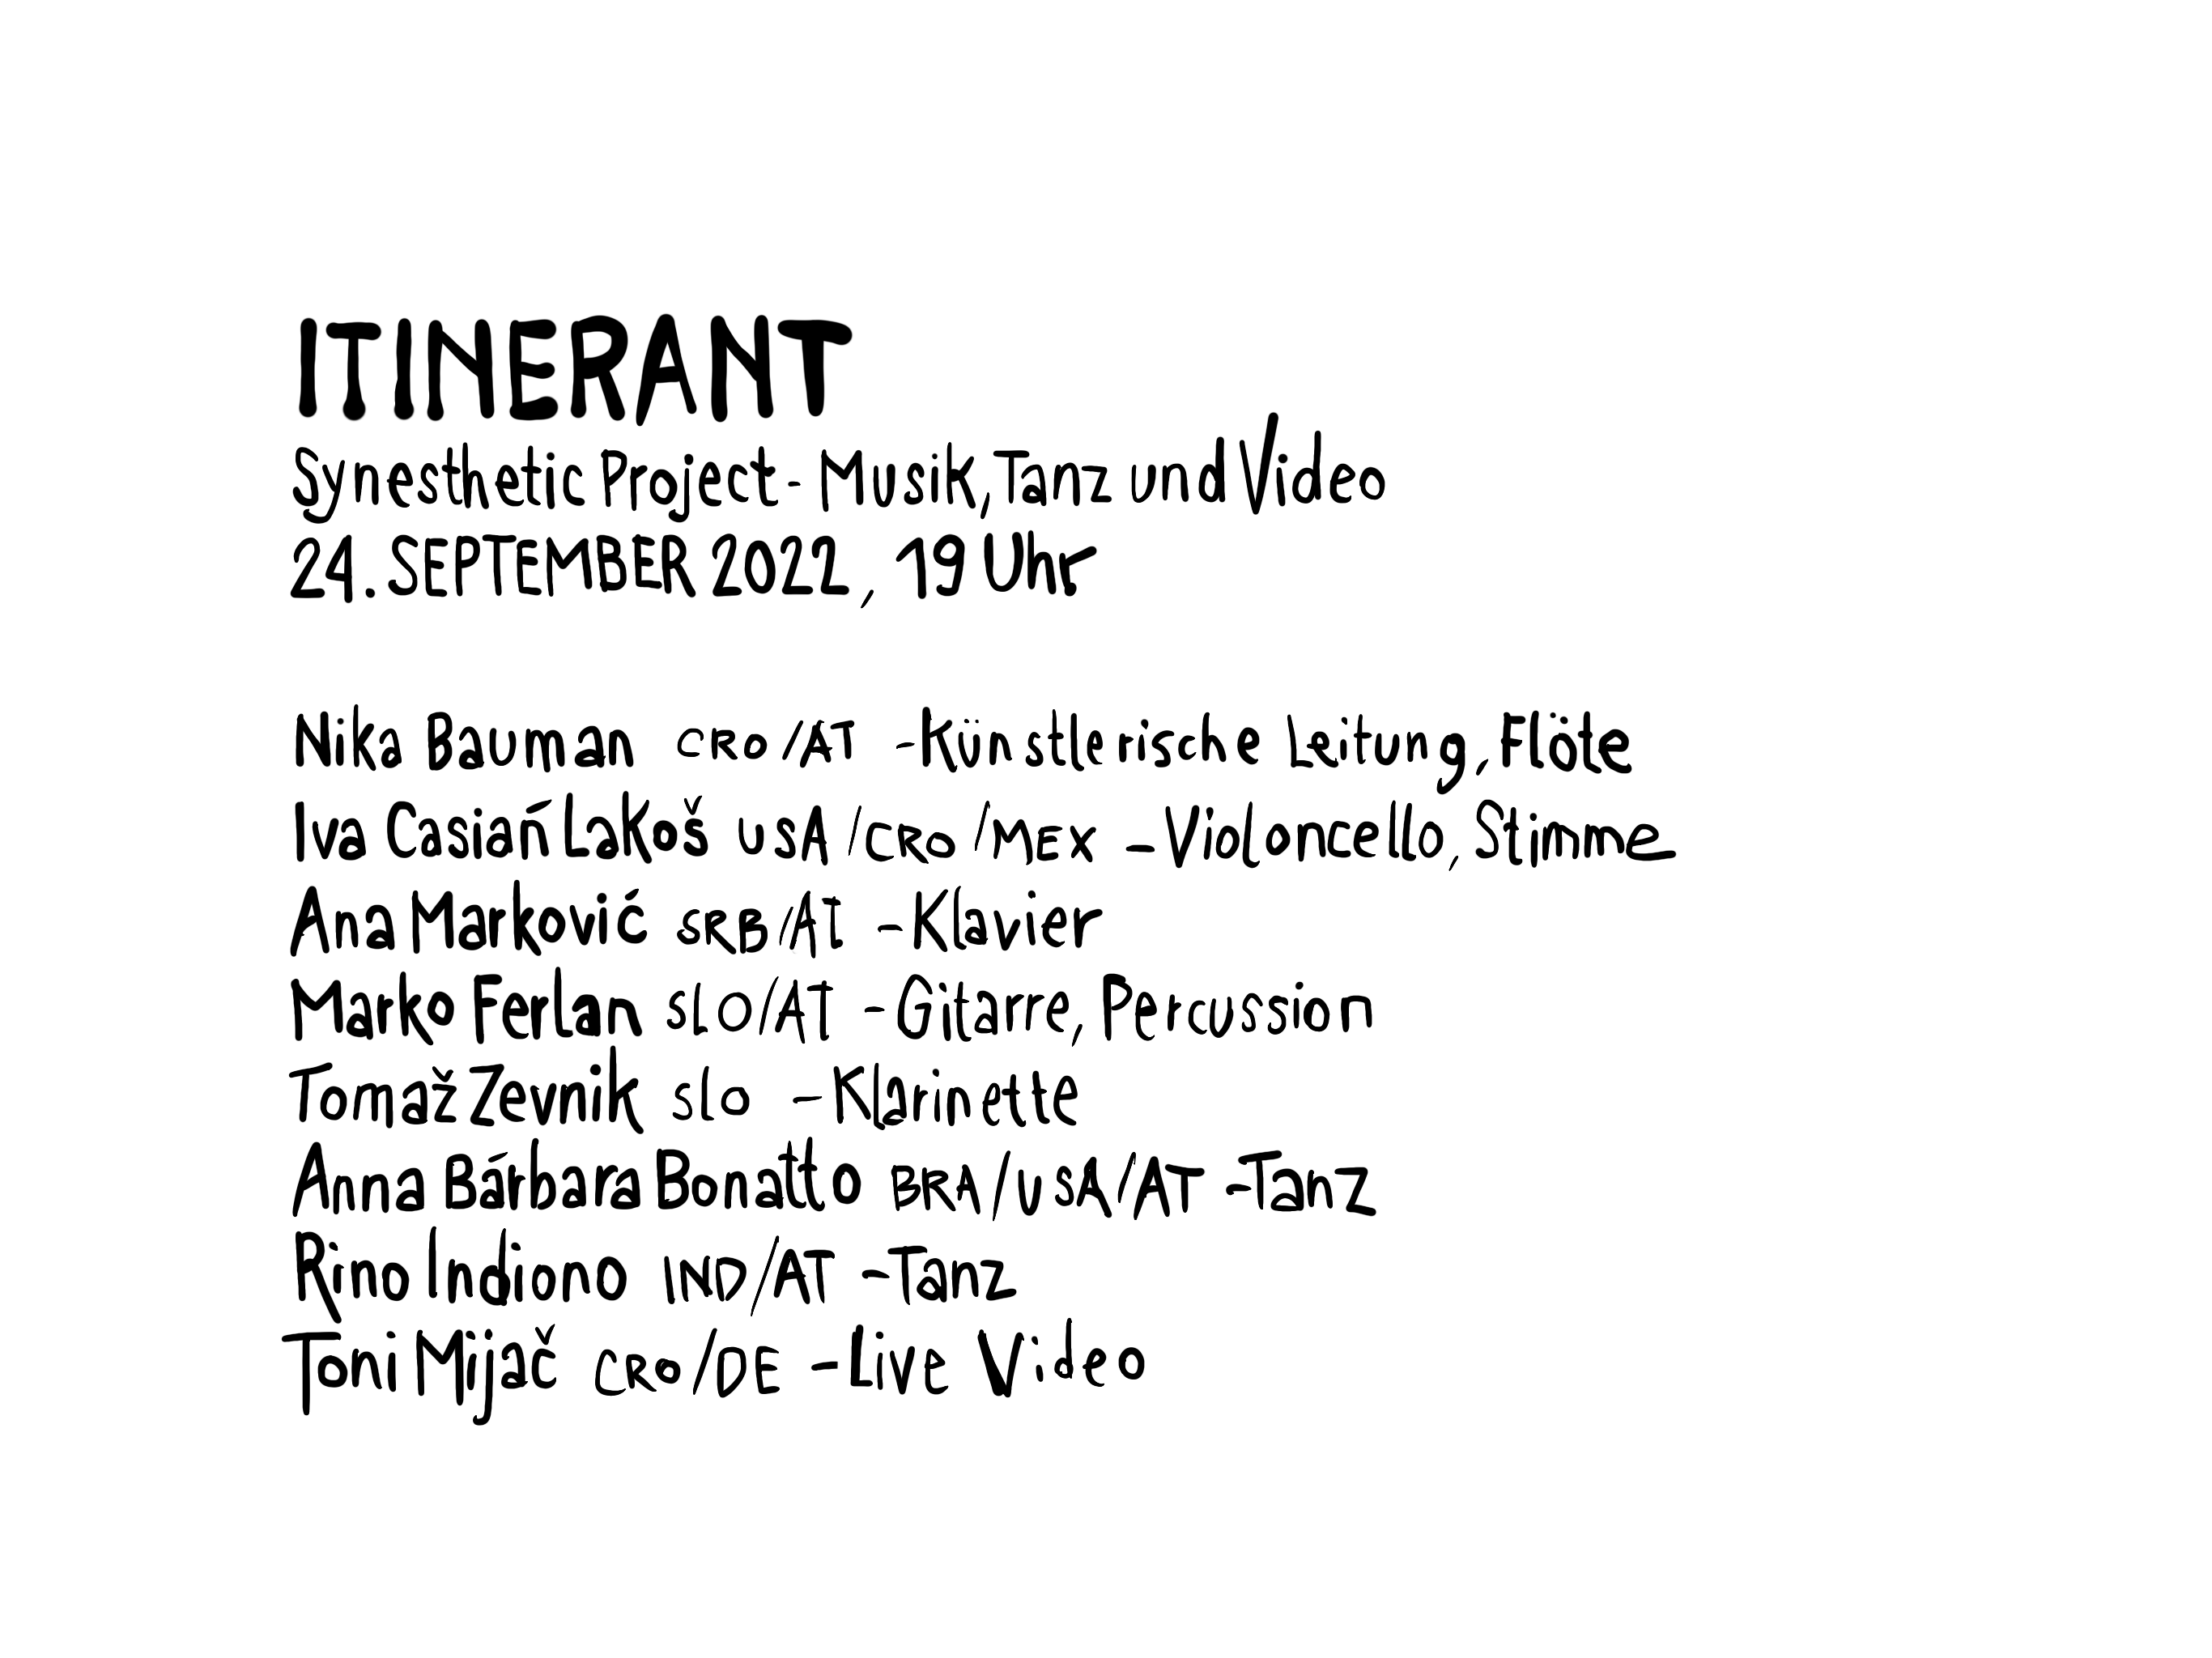 ITINERANT
Synesthetic Project - Musik, Tanz und Video
24. SEPTEMBER 2022, 19 Uhr
Nika Bauman CRO/AT - Künstlerische Leitung, Flöte
Iva Casiań Lakoš USA/CRO/MEX - Violoncello, Stimme
Ana Marković SRB/AT - Klavier
Marko Ferlan SLO/AT - Gitarre, Percussion
Tomaž Zevnik SLO - Klarinette
Anna Bárbara Bonatto BRA/USA/AT - Tanz
Rino Indiono IND/AT - Tanz
Toni Mijač CRO/DE - Live Video